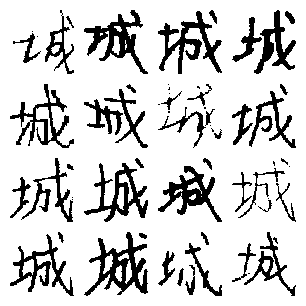 城城城城
城城城城
城城城城
城城城城